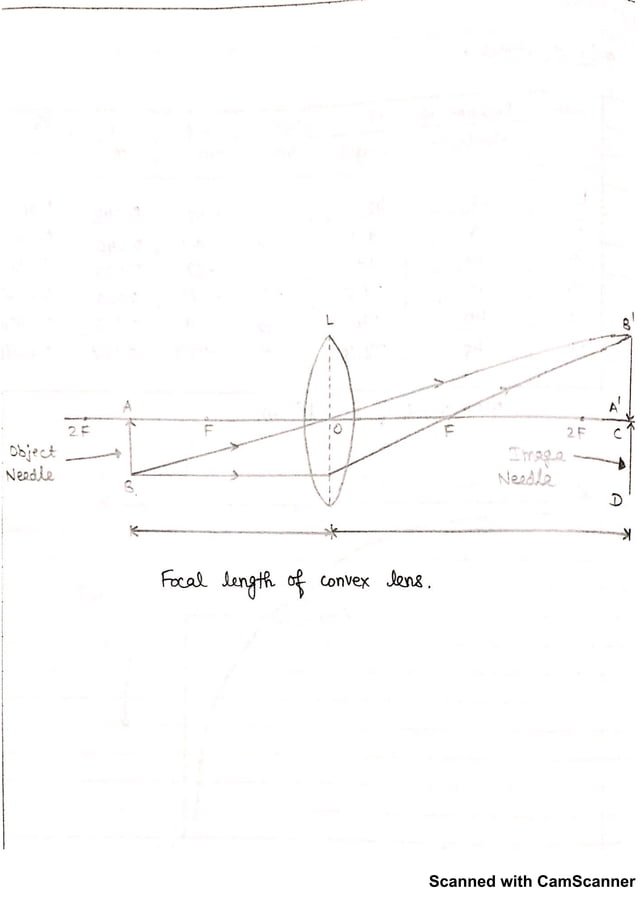 L
B'
A
A'
2F
F
O
F
2F
C
Object
Needle
Image
Needle
B
D
Focal length of convex lens.
Scanned with CamScanner